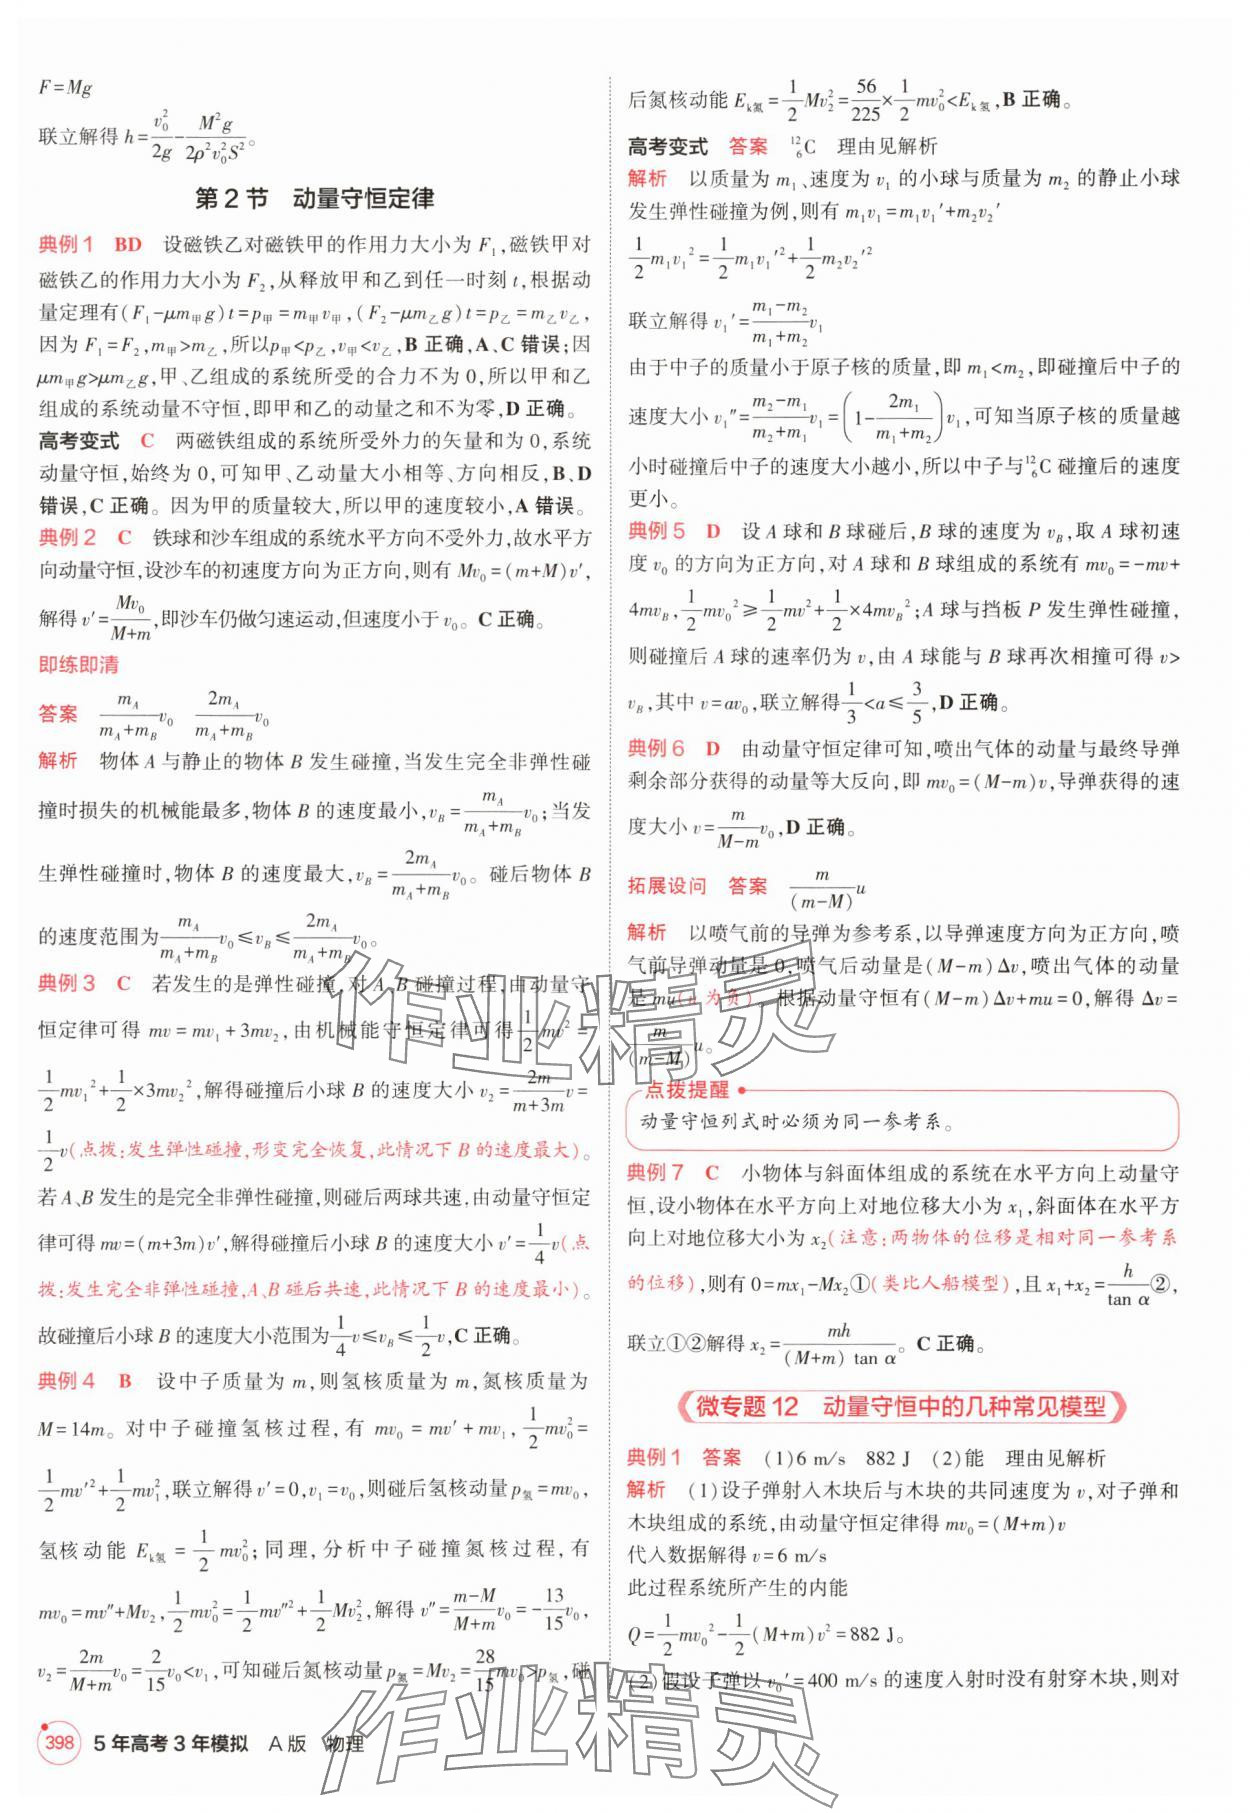 F=Mg
联立解得 h=\frac{v_0^2}{2g}-\frac{M^2g}{2ρ^2v_0^2S^2}。
第 2 节 动量守恒定律
典例 1 BD 设磁铁乙对磁铁甲的作用力大小为 F_1,磁铁甲对
磁铁乙的作用力大小为 F_2,从释放甲和乙到任一时刻 t,根据动
量定理有(F_1-μm_甲g)t=p_甲=m_甲v_甲,(F_2-μm_乙g)t=p_乙=m_乙v_乙,
因为 F_1=F_2,m_甲>m_乙,所以p_甲<p_乙,v_甲<v_乙,B 正确,A、C 错误;因
μm_甲g>μm_乙g,甲、乙组成的系统所受的合力不为 0,所以甲和乙
组成的系统动量不守恒,即甲和乙的动量之和不为零,D 正确。
高考变式 C 两磁铁组成的系统所受外力的矢量和为 0,系统
动量守恒,始终为 0,可知甲、乙动量大小相等、方向相反,B、D
错误,C 正确。因为甲的质量较大,所以甲的速度较小,A 错误。
典例 2 C 铁球和沙车组成的系统水平方向不受外力,故水平方
向动量守恒,设沙车的初速度方向为正方向,则有 Mv_0=(m+M)v′,
解得 v′=\frac{Mv_0}{M+m},即沙车仍做匀速运动,但速度小于 v_0。C 正确。
即练即清
答案 \frac{m_A}{m_A+m_B}v_0 \frac{2m_A}{m_A+m_B}v_0
解析 物体 A 与静止的物体 B 发生碰撞,当发生完全非弹性碰
撞时损失的机械能最多,物体 B 的速度最小,v_B=\frac{m_A}{m_A+m_B}v_0;当发
生弹性碰撞时,物体 B 的速度最大,v_B=\frac{2m_A}{m_A+m_B}v_0。碰后物体 B
的速度范围为\frac{m_A}{m_A+m_B}v_0≤v_B≤\frac{2m_A}{m_A+m_B}v_0。
典例 3 C 若发生的是弹性碰撞,对 A、B 碰撞过程,由动量守
恒定律可得 mv=mv_1+3mv_2,由机械能守恒定律可得\frac{1}{2}mv^2=
\frac{1}{2}mv_1^2+\frac{1}{2}×3mv_2^2,解得碰撞后小球 B 的速度大小 v_2=\frac{2m}{m+3m}v=
\frac{1}{2}v(点拨:发生弹性碰撞,形变完全恢复,此情况下 B 的速度最大)。
若 A、B 发生的是完全非弹性碰撞,则碰后两球共速,由动量守恒定
律可得 mv=(m+3m)v′,解得碰撞后小球 B 的速度大小 v′=\frac{1}{4}v(点
拨:发生完全非弹性碰撞,A、B 碰后共速,此情况下 B 的速度最小)。
故碰撞后小球 B 的速度大小范围为\frac{1}{4}v≤v_B≤\frac{1}{2}v,C 正确。
典例 4 B 设中子质量为 m,则氢核质量为 m,氮核质量为
M=14m。对中子碰撞氢核过程,有 mv_0=mv′+mv_1,\frac{1}{2}mv_0^2=
\frac{1}{2}mv′^2+\frac{1}{2}mv_1^2,联立解得 v′=0,v_1=v_0,则碰后氢核动量 p_氢=mv_0,
氢核动能 E_{k氢}=\frac{1}{2}mv_0^2;同理,分析中子碰撞氮核过程,有
mv_0=mv″+Mv_2,\frac{1}{2}mv_0^2=\frac{1}{2}mv″^2+\frac{1}{2}Mv_2^2,解得 v″=\frac{m-M}{M+m}v_0=-\frac{13}{15}v_0,
v_2=\frac{2m}{M+m}v_0=\frac{2}{15}v_0<v_1,可知碰后氮核动量p_氮=Mv_2=\frac{28}{15}mv_0>p_氢,碰
398 5 年高考 3 年模拟 A 版 物理
后氮核动能 E_{k氮}=\frac{1}{2}Mv_2^2=\frac{56}{225}×\frac{1}{2}mv_0^2<E_{k氢},B 正确。
高考变式 答案 ^{12}_6C 理由见解析
解析 以质量为 m_1、速度为 v_1 的小球与质量为 m_2 的静止小球
发生弹性碰撞为例,则有 m_1v_1=m_1v_1′+m_2v_2′
\frac{1}{2}m_1v_1^2=\frac{1}{2}m_1v_1′^2+\frac{1}{2}m_2v_2′^2
联立解得 v_1′=\frac{m_1-m_2}{m_1+m_2}v_1
由于中子的质量小于原子核的质量,即 m_1<m_2,即碰撞后中子的
速度大小 v_1″=\frac{m_2-m_1}{m_2+m_1}v_1=(1-\frac{2m_1}{m_1+m_2})v_1,可知当原子核的质量越
小时碰撞后中子的速度大小越小,所以中子与^{12}_6C 碰撞后的速度
更小。
典例 5 D 设 A 球和 B 球碰后,B 球的速度为 v_B,取 A 球初速
度 v_0 的方向为正方向,对 A 球和 B 球组成的系统有 mv_0=-mv+
4mv_B,\frac{1}{2}mv_0^2≥\frac{1}{2}mv^2+\frac{1}{2}×4mv_B^2;A 球与挡板 P 发生弹性碰撞,
则碰撞后 A 球的速率仍为 v,由 A 球能与 B 球再次相撞可得 v>
v_B,其中 v=av_0,联立解得\frac{1}{3}<a≤\frac{3}{5},D 正确。
典例 6 D 由动量守恒定律可知,喷出气体的动量与最终导弹
剩余部分获得的动量等大反向,即 mv_0=(M-m)v,导弹获得的速
度大小 v=\frac{m}{M-m}v_0,D 正确。
拓展设问 答案 \frac{m}{(m-M)}u
解析 以喷气前的导弹为参考系,以导弹速度方向为正方向,喷
气前导弹动量是 0,喷气后动量是(M-m)Δv,喷出气体的动量
是 mu(u 为负)。根据动量守恒有(M-m)Δv+mu=0,解得 Δv=
\frac{m}{(m-M)}u。
点拨提醒
动量守恒列式时必须为同一参考系。
典例 7 C 小物体与斜面体组成的系统在水平方向上动量守
恒,设小物体在水平方向上对地位移大小为 x_1,斜面体在水平方
向上对地位移大小为 x_2(注意:两物体的位移是相对同一参考系
的位移),则有 0=mx_1-Mx_2①(类比人船模型),且 x_1+x_2=\frac{h}{tan α}②,
联立①②解得 x_2=\frac{mh}{(M+m) tan α}。C 正确。
微专题 12 动量守恒中的几种常见模型
典例 1 答案 (1)6 m/s 882 J (2)能 理由见解析
解析 (1)设子弹射入木块后与木块的共同速度为 v,对子弹和
木块组成的系统,由动量守恒定律得 mv_0=(M+m)v
代入数据解得 v=6 m/s
此过程系统所产生的内能
Q=\frac{1}{2}mv_0^2-\frac{1}{2}(M+m)v^2=882 J。
(2)假设子弹以 v_0′=400 m/s 的速度入射时没有射穿木块,则对
作业精灵
作业精灵